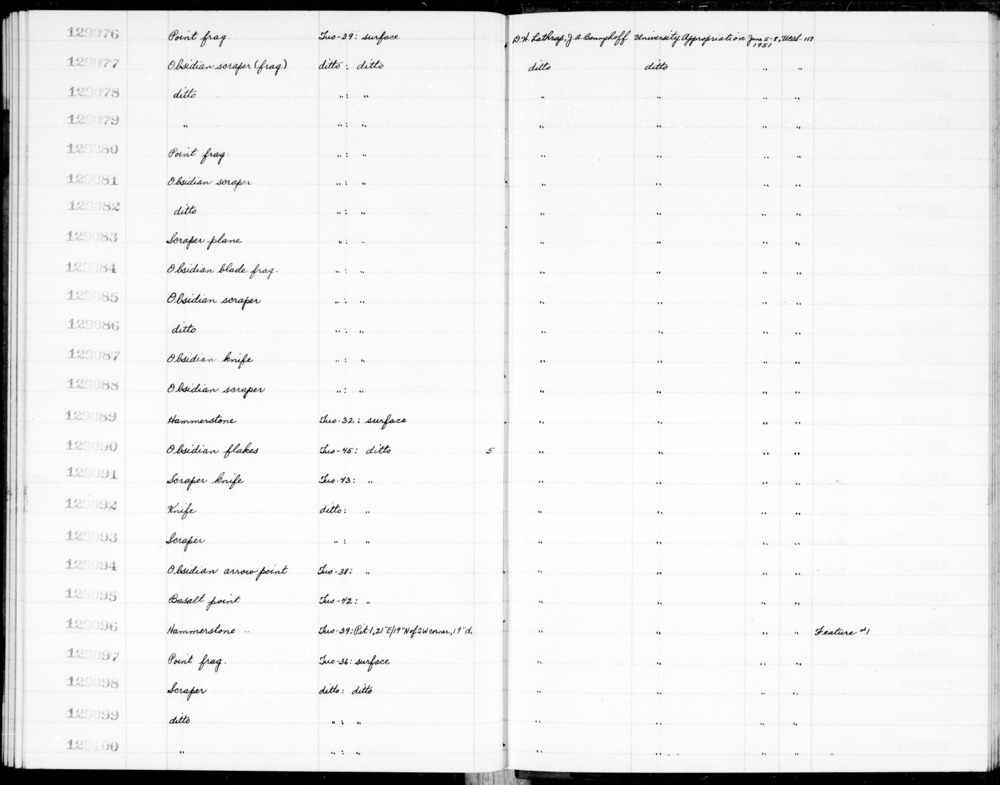 129076 Point frag. Tuo-39: surface D.W. Lathrap, J.A. Bennyhoff University Appropriation June 5-8, 1951 117
129077 Obsidian scraper (frag) ditto: ditto ditto ditto " "
129078 ditto ": " " " " "
129079 " ": " " " " "
129080 Point frag. ": " " " " "
129081 Obsidian scraper ": " " " " "
129082 ditto ": " " " " "
129083 Scraper plane ": " " " " "
129084 Obsidian blade frag. ": " " " " "
129085 Obsidian scraper ": " " " " "
129086 ditto ": " " " " "
129087 Obsidian knife ": " " " " "
129088 Obsidian scraper ": " " " " "
129089 Hammerstone Tuo-32: surface " " " "
129090 Obsidian flakes Tuo-45: ditto 5 " " " "
129091 Scraper knife Tuo-43: " " " " "
129092 Knife ditto: " " " " "
129093 Scraper ": " " " " "
129094 Obsidian arrow point Tuo-38: " " " " "
129095 Basalt point Tuo-42: " " " " "
129096 Hammerstone " Tuo-39: Pit 1, 21" E/19" N of SW corner, 19" d. " " " " Feature #1
129097 Point frag. Tuo-36: surface " " " "
129098 Scraper ditto: ditto " " " "
129099 ditto ": " " " " "
129100 " ": " " " " "